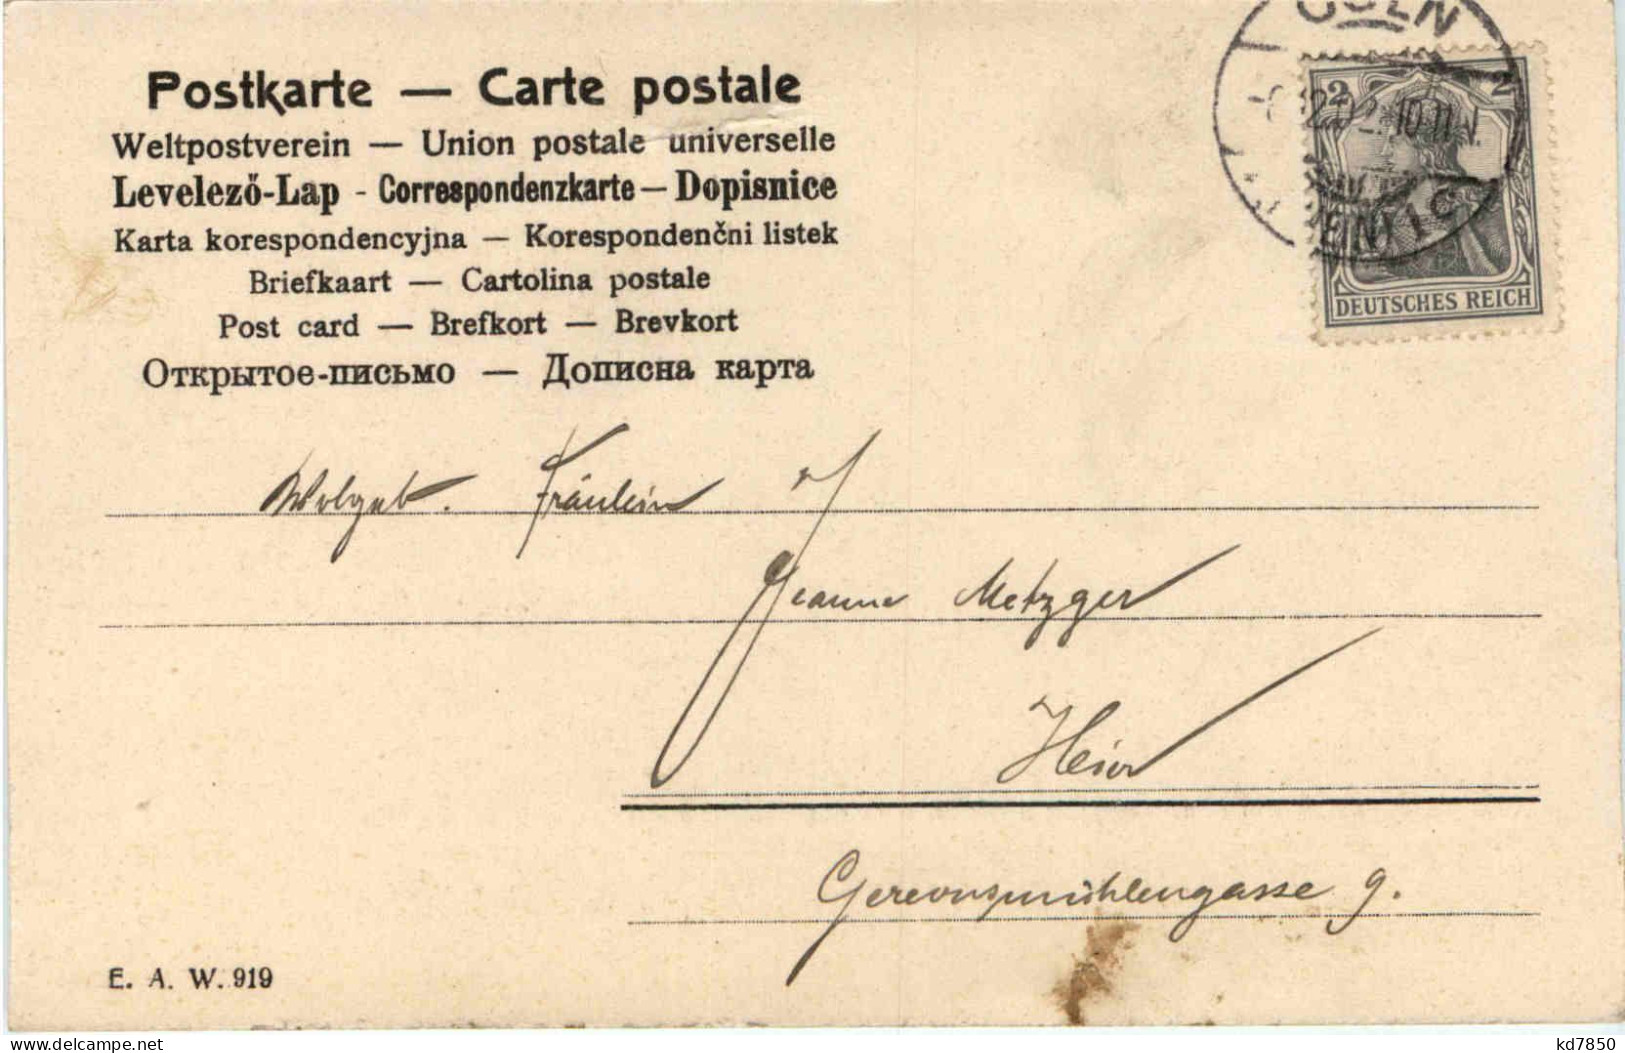 Postkarte — Carte postale
Weltpostverein — Union postale universelle
Levelező-Lap - Correspondenzkarte — Dopisnice
Karta korespondencyjna — Korespondenčni listek
Briefkaart — Cartolina postale
Post card — Brefkort — Brevkort
Открытое-письмо — Дописна карта
CÖLN
2 2
10-11 V.
1 C
DEUTSCHES REICH
Wolgeb. Fräulein
Jeanne Metzger
Hier
Gereonsmühlengasse 9.
E. A. W. 919
delcampe.net
kd7850